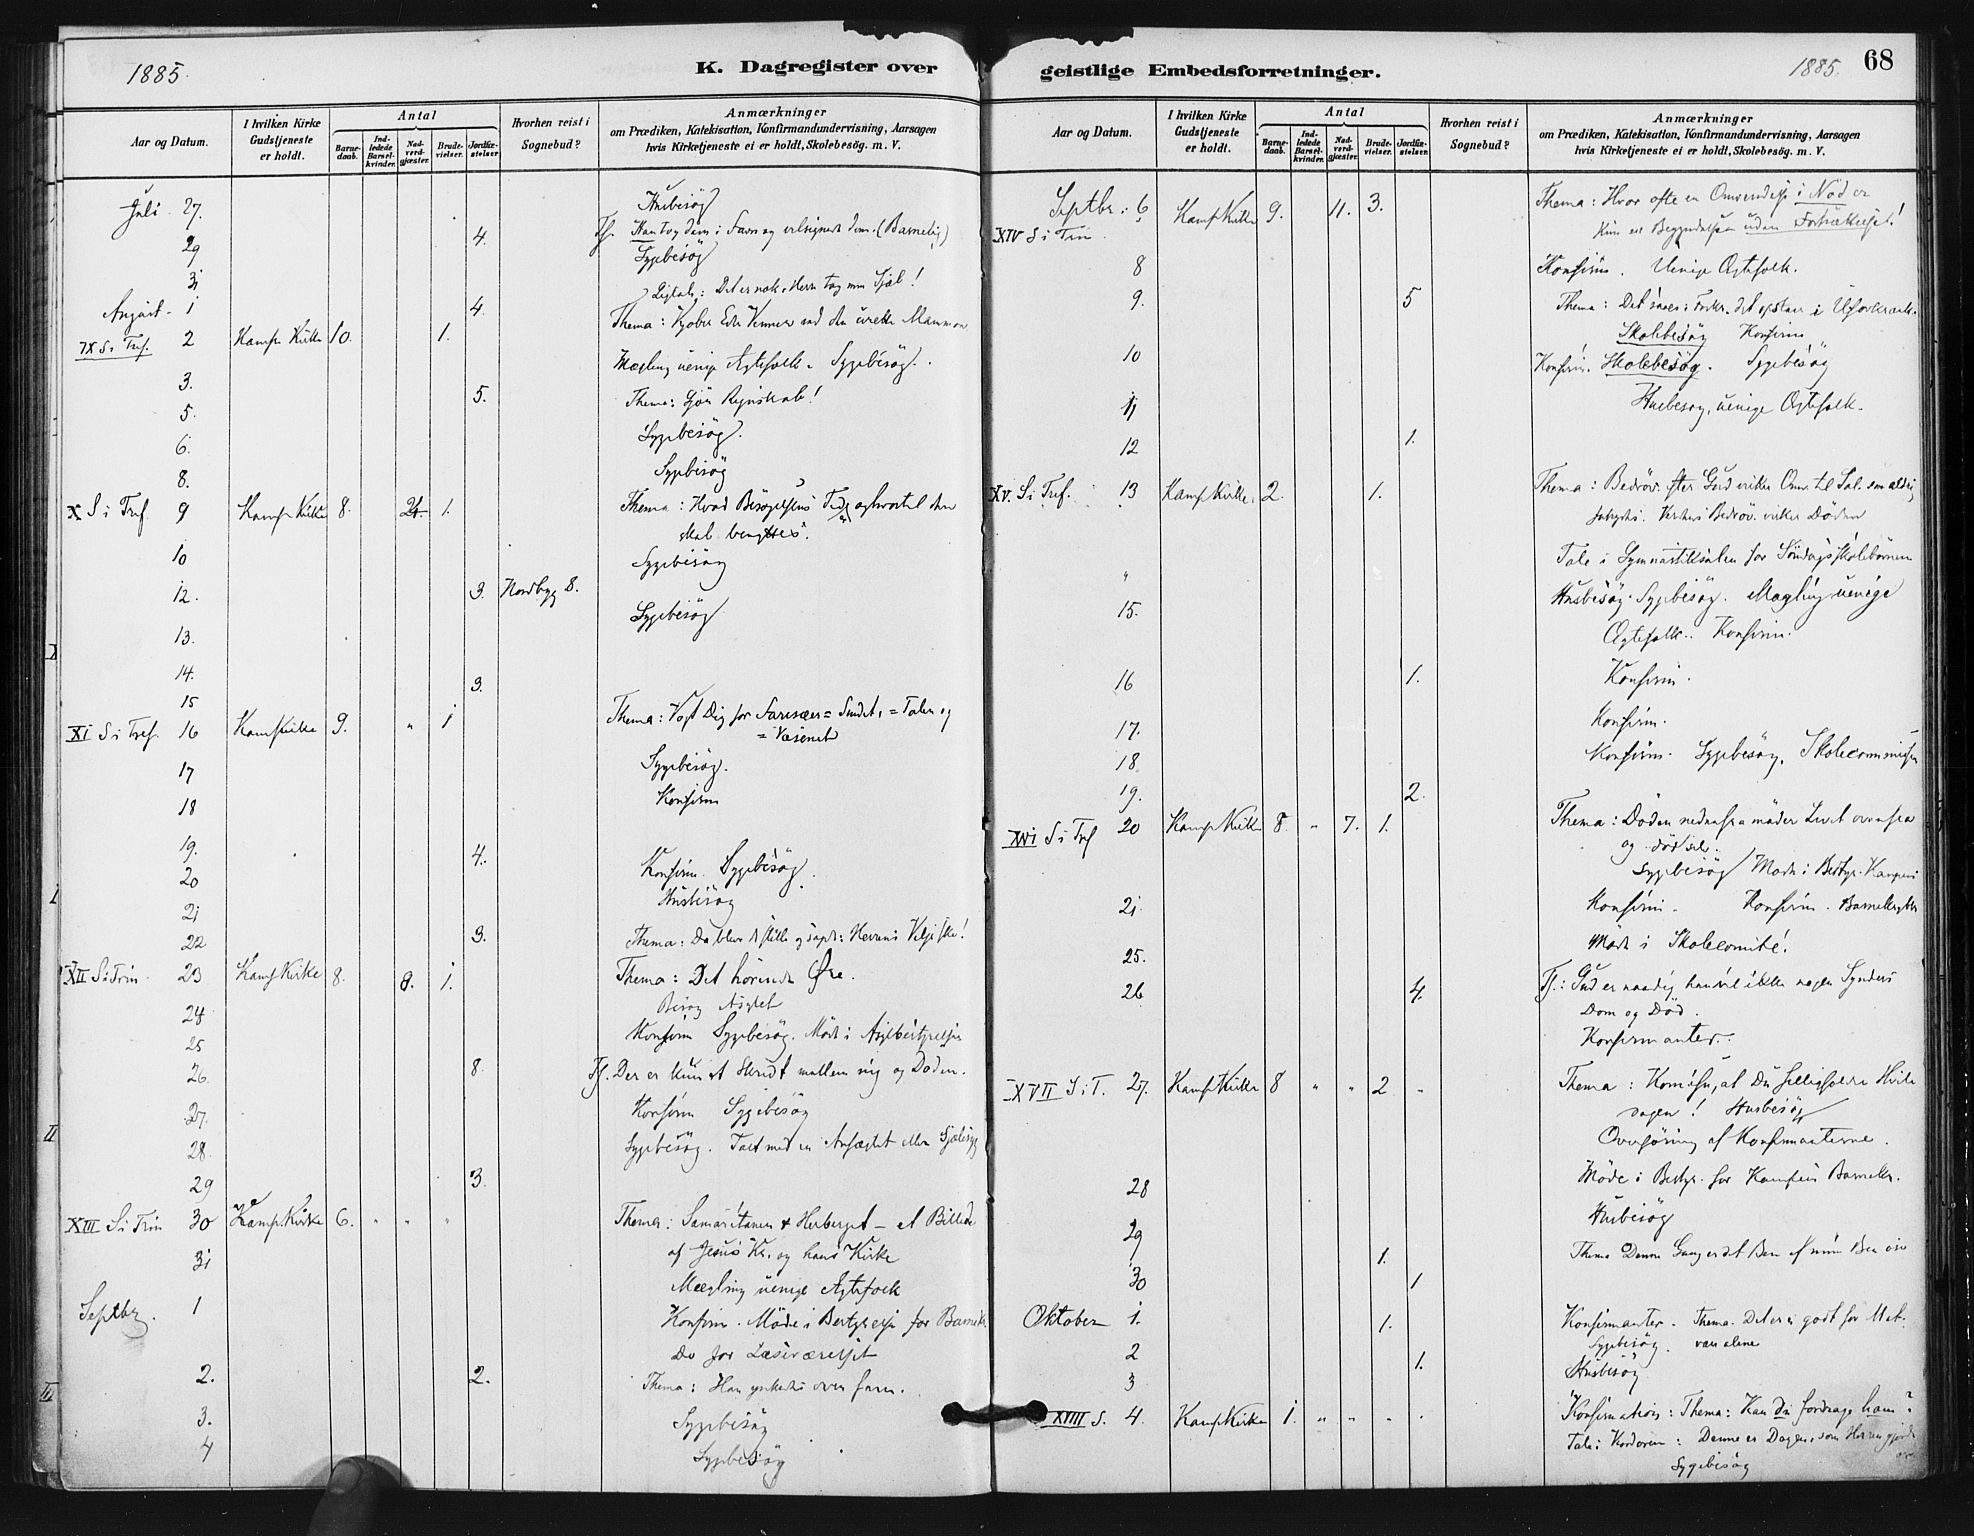 1885.
K. Dagregister over
Aar og Datum.
I hvilken Kirke Gudstjeneste er holdt.
Antal
Barnedaab.
Indledede Barselkvinder.
Nadverdgjæster.
Brudevielser.
Jordfæstelser
Hvorhen reist i Sognebud?
Anmærkninger
om Prædiken, Katekisation, Konfirmandundervisning, Aarsagen
hvis Kirketjeneste ei er holdt, Skolebesög. m. V.
Juli 27. Husbesög
29 4. Han tog dem i Favn og velsignede dem. (Barnelig)
Sygebesög
31 Det er nok, Herre tag min Sjæl!
August 1 4.
IX S. i Tref. 2 Kamp. Kirke 10. 1. Thema: Venner ved den urette Mammon
3. Mægling uenige Ægtefolk. Sygebesög.
5. 5. Thema: Gjör Regnskab!
6. Sygebesög.
8. Sygebesög
X S. i Tref. 9 Kamp. Kirke 8. 1. Thema: Hvad Besögelsens Tid er og hvortil den
skal benyttes.
10 Sygebesög
12. 3. Nordbyg 8.
13. Sygebesög
14.
15 3.
XI S. i Tref. 16 Kamp Kirke 9. " 1 Thema: Vogt Dig for Farisæer= Sindet, = Talen og
= Væsenet
17 Sygebesög.
18 Konfirm
19. 4.
20 Konfirm. Sygebesög.
21 Husbesög
22 3. Thema: Da blev stille og sagde: Herrens Vilje ske!
XII S. i Trin. 23 Kamp Kirke 8. 9. 1. Thema: Det hörende Öre.
24 Besög Asylet
25 Konfirm Sygebesög. Möde i Asylbestyrelsen
26. 8. Tf. Der er kun et Skridt mellem mig og Döden.
27. Konfirm Sygebesög
28. Sygebesög. Talt med en Anfægtet
29 3.
XIII S. i Trin 30 Kamp. Kirke 6. " " " Thema: Samaritanen & Herberget – et Billede
31 af Jesus Kr. og hans Kirke
Mægling uenige Ægtefolk
Septbr. 1 Konfirm. Möde i Bestyrelse for Barnekr.
Do for Læseværelset
2. 2. Thema: Han ynkedes over
3. Sygebesög
4 Sygebesög
geistlige Embedsforretninger.
1885. 68
Aar og Datum.
I hvilken Kirke Gudstjeneste er holdt.
Antal
Barnedaab.
Indledede Barselkvinder.
Nadverdgjæster.
Brudevielser.
Jordfæstelser.
Hvorhen reist i Sognebud?
Anmærkninger
om Prædiken, Katekisation, Konfirmandundervisning, Aarsagen
hvis Kirketjeneste ei er holdt, Skolebesög. m. V.
Septbr. 6 Kamp Kirke 9. 11. 3. Thema: Hvor ofte en Omvendelse i Nöd er
XIV S i Trin Kun en Begyndelse uden Fortsættelse!
8 Konfirm. Uenige Ægtefolk.
9. 5 Thema: Det saaes i
Skolebesög Konfirm
10 Konfirm. Skolebesög. Sygebesög
11 Husbesög, uenige Ægtefolk.
12 1.
XV. S. i Tref. 13 Kamp Kirke. 2. 1. Thema: Bedröv. efter Gud virker Omv. til Sal. som aldrig
fortrydes. Verdens Bedröv. virker Döden
" Tale i Gymnastiksalen for Söndagsskolebörnene
15. Husbesög. Sygebesög. Mægling uenige
Ægtefolk. Konfirm.
16 1. Konfirm.
17. Konfirm.
18 Konfirm. Sygebesög. Skolecommission
19. 2.
XVI S. i Tref 20 Kamp Kirke 8. " 7. 1. Thema: Döden nedenfra möder Livet ovenfra
og
Sygebesög Möde i Bestyr. Kampens
21. Konfirm. Konfirm.
25. Möde i Skolecomité.
26 4. Tf.: Gud er naadig han vil ikke nogen Synders
Dom og Död.
Konfirmanter.
XVII S. i T. 27. Kamp Kirke 8 " " 2 Thema: Kom ihu, at Du helligholder Hvile
dagen! Husbesög
Overhöring af Konfirmanterne.
28 Möde i Bestyr. for Kampens Barnekr.
29 Husbesög
1. Thema Denne Gang er det Ben af mine Ben
30 1
Oktober 1. 1. Konfirmanter. Thema. Det er ei godt for Mst.
Sygebesög. være alene
2 1. Husbesög
3
XVIII S. 4. Kamp Kirke 1. " " " Konfirmation: Thema: Kan du fordrage ham?
Tale i Kordören: Denne er Dagen, som Herren gjorde
Sygebesög